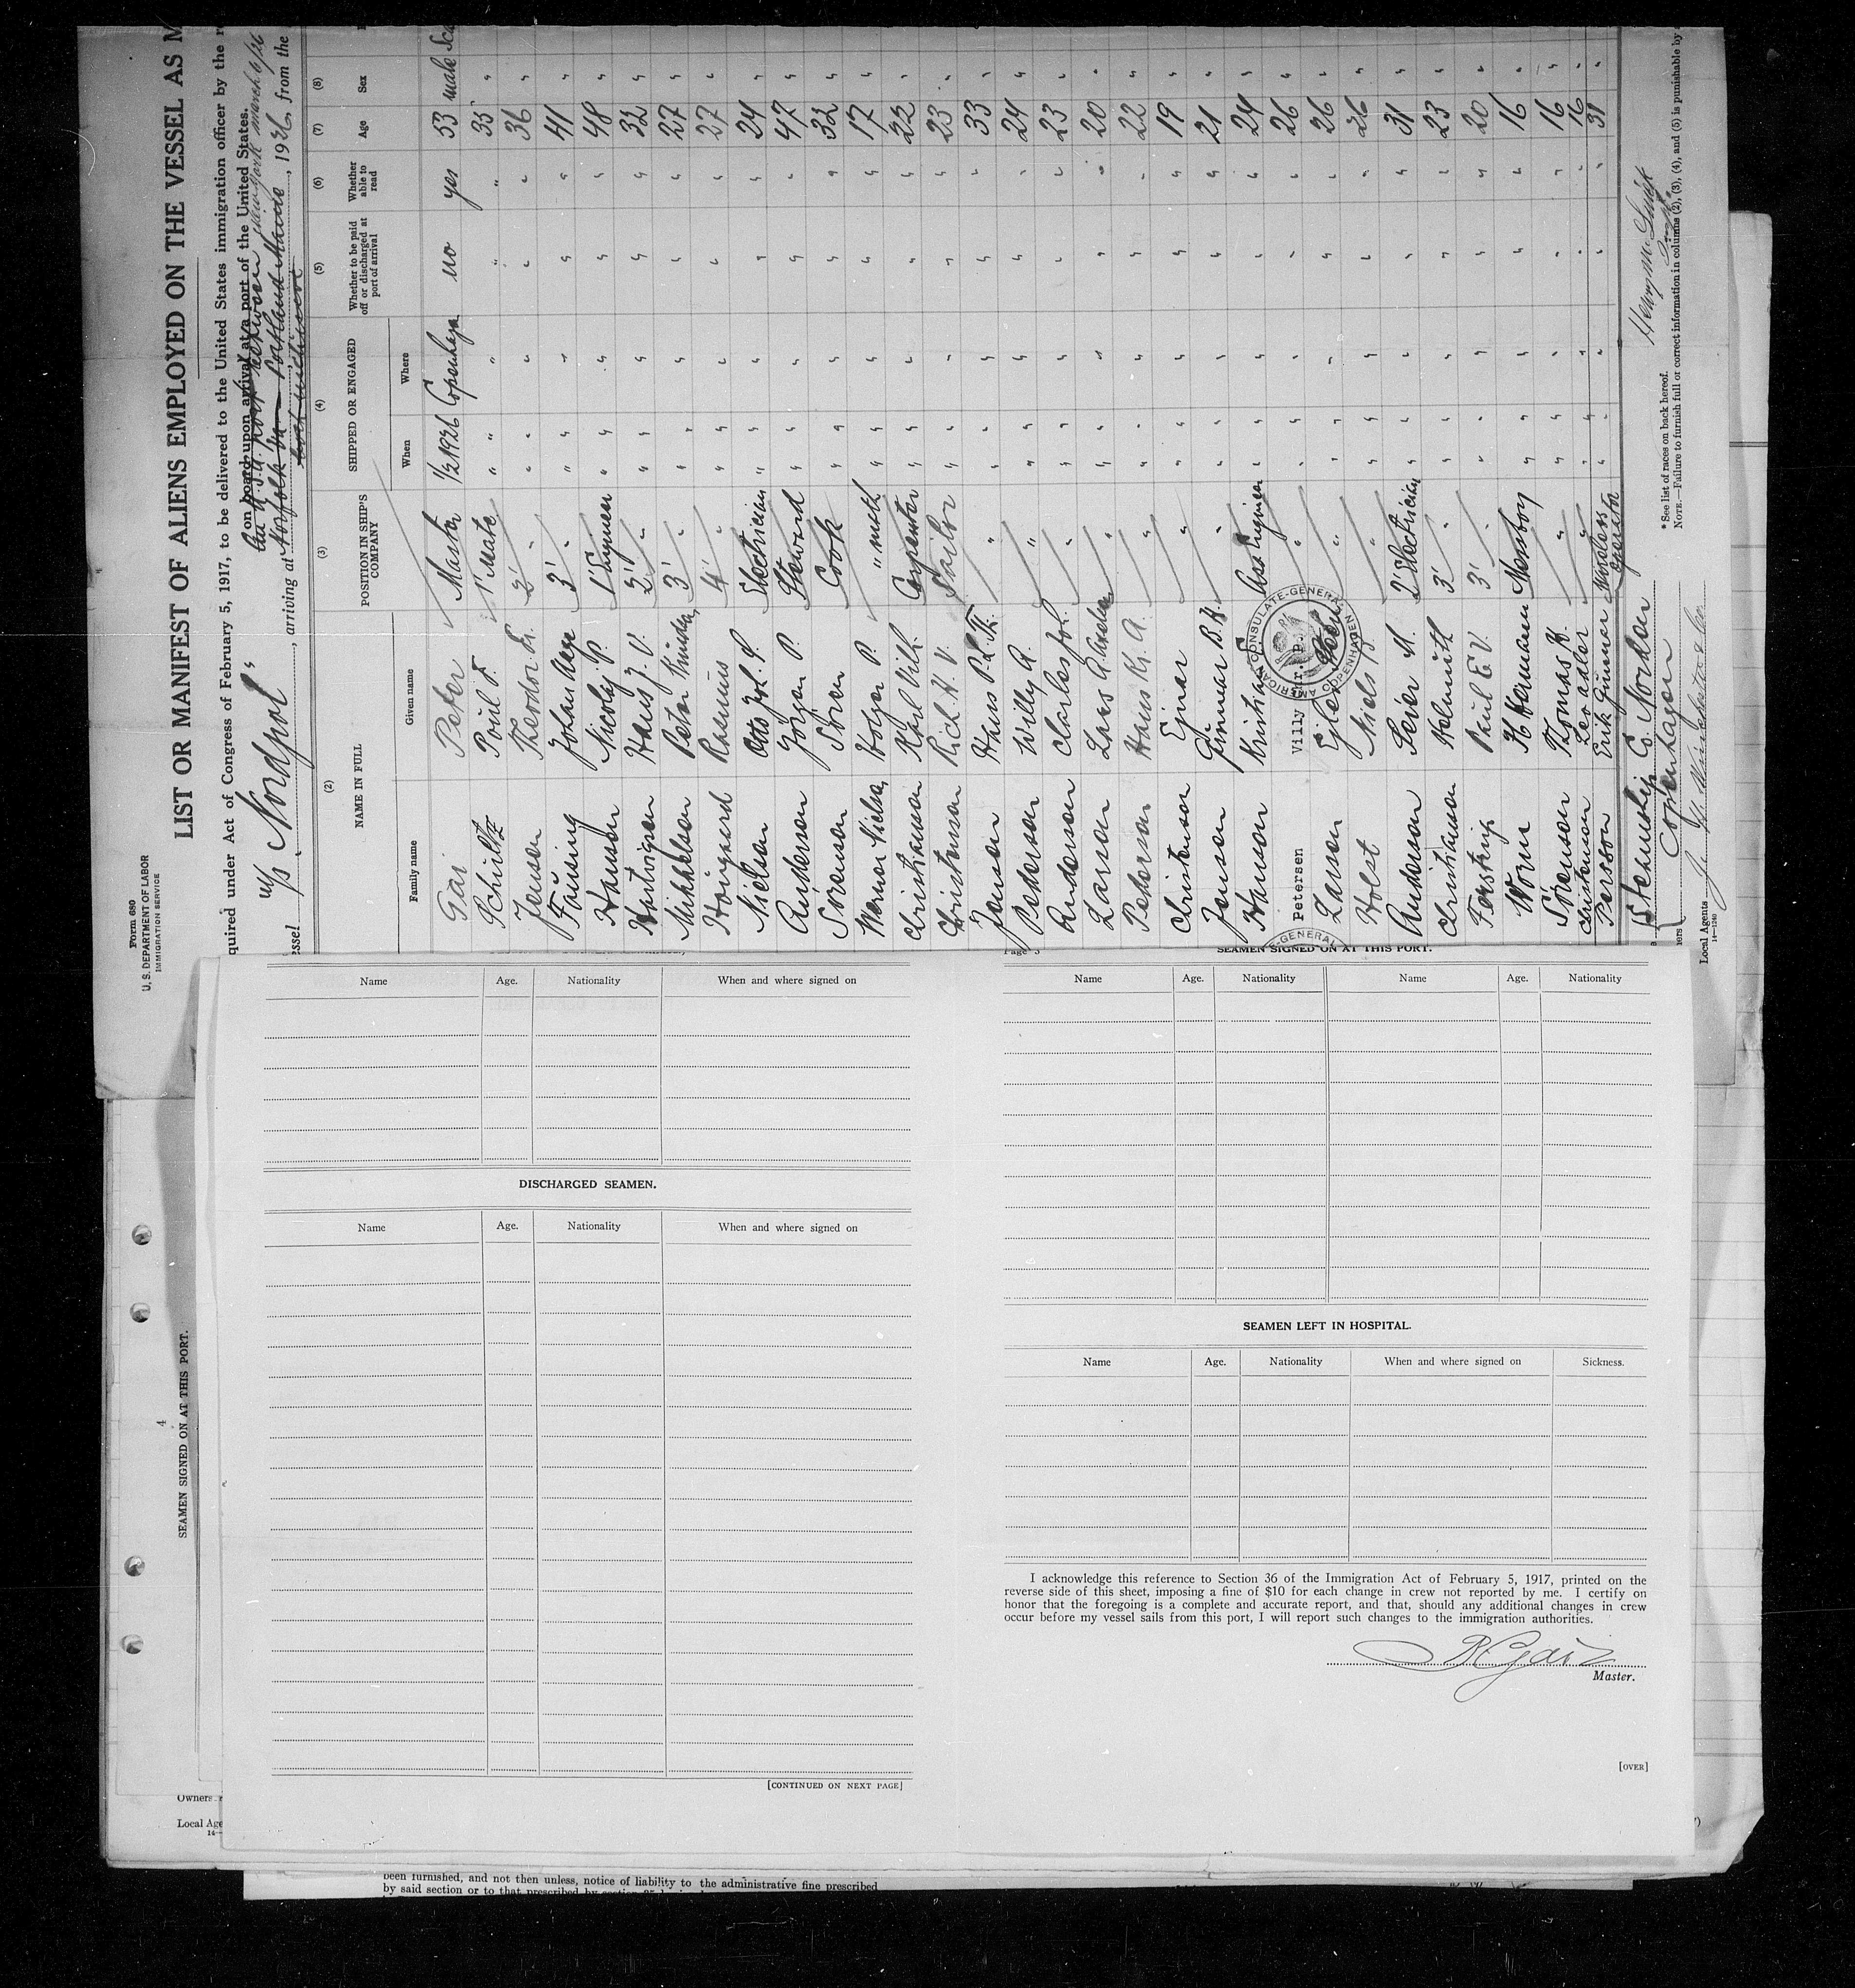 Form 680
U. S. DEPARTMENT OF LABOR
IMMIGRATION SERVICE
LIST OR MANIFEST OF ALIENS EMPLOYED ON THE VESSEL AS M
quired under Act of Congress of February 5, 1917, to be delivered to the United States immigration officer by the r
on board upon arrival at a port of the United States.
essel M/S "Nordpol", arriving at Norfolk Va Portland Maine, 1926, from the
(2) (3) (4) (5) (6) (7) (8)
NAME IN FULL POSITION IN SHIP'S COMPANY SHIPPED OR ENGAGED Whether to be paid off or discharged at port of arrival Whether able to read Age Sex
Family name Given name When Where
Gai Peter Master 1/2 1926 Copenhagen no yes 53 male
Schiltz Poul F. 1' Mate " " " " 35 "
Jensen Theodor 2' " " " " " 36 "
Fausing Johan 3' " " " " " 41 "
Hansen Nicolaj P. 1' Engineer " " " " 48 "
Hartvigsen Hans J. V. 2' " " " " " 32 "
Mikkelsen Peter 3' " " " " " 27 "
Rasmus 4' " " " " " 27 "
Nielsen Otto Electrician " " " " 24 "
Andersen Jörgen P. Steward " " " " 47 "
Sörensen Sören Cook " " " " 32 "
Werner Nielsen Holger P. " " " " " 17 "
Christiansen Karl Vilh. Carpenter " " " " 22 "
Christensen Rich. H. V. Sailor " " " " 23 "
Jensen Hans " " " " " 33 "
Pedersen Willy A. " " " " " 24 "
Andersen Charles Joh. " " " " " 23 "
Larsen Lars " " " " " 20 "
Pedersen Hans Kr. A. " " " " " 22 "
Christensen Ejnar " " " " " 19 "
Jensen Gunnar " " " " " 21 "
Hansen Kristian Asst Engineer " " " " 24 "
Petersen Villy " " " " " 26 "
Larsen Ejler " " " " " 26 "
Holst Niels " " " " " 26 "
Andersen 2' Electrician " " " " 31 "
Christiansen Helmuth 3' " " " " " 23 "
Paul E. V. 3' " " " " " 20 "
Worm Hermann Messboy " " " " 16 "
Sörensen Thomas " " " " " 16 "
Christensen " " " " " 16 "
Persson Erik Gunnar Wireless Operator " " " " 31 "
AMERICAN CONSULATE-GENERAL
COPENHAGEN
E-GENERAL
Dampskib Co. Norden
Copenhagen
ners
Local Agents
14—1240
*See list of races on back hereof.
NOTE.—Failure to furnish full or correct information in columns (2), (3), (4), and (5) is punishable by
Page 3
SEAMEN SIGNED ON AT THIS PORT.
Name Age. Nationality When and where signed on
Name Age. Nationality Name Age. Nationality
DISCHARGED SEAMEN.
Name Age. Nationality When and where signed on
[CONTINUED ON NEXT PAGE]
SEAMEN LEFT IN HOSPITAL.
Name Age. Nationality When and where signed on Sickness.
I acknowledge this reference to Section 36 of the Immigration Act of February 5, 1917, printed on the
reverse side of this sheet, imposing a fine of $10 for each change in crew not reported by me. I certify on
honor that the foregoing is a complete and accurate report, and that, should any additional changes in crew
occur before my vessel sails from this port, I will report such changes to the immigration authorities.
P Gai
Master.
[OVER]
4
SEAMEN SIGNED ON AT THIS PORT.
Owners
Local Age
14—
been furnished, and not then unless, notice of liability to the administrative fine prescribed
by said section or to that prescribed by section